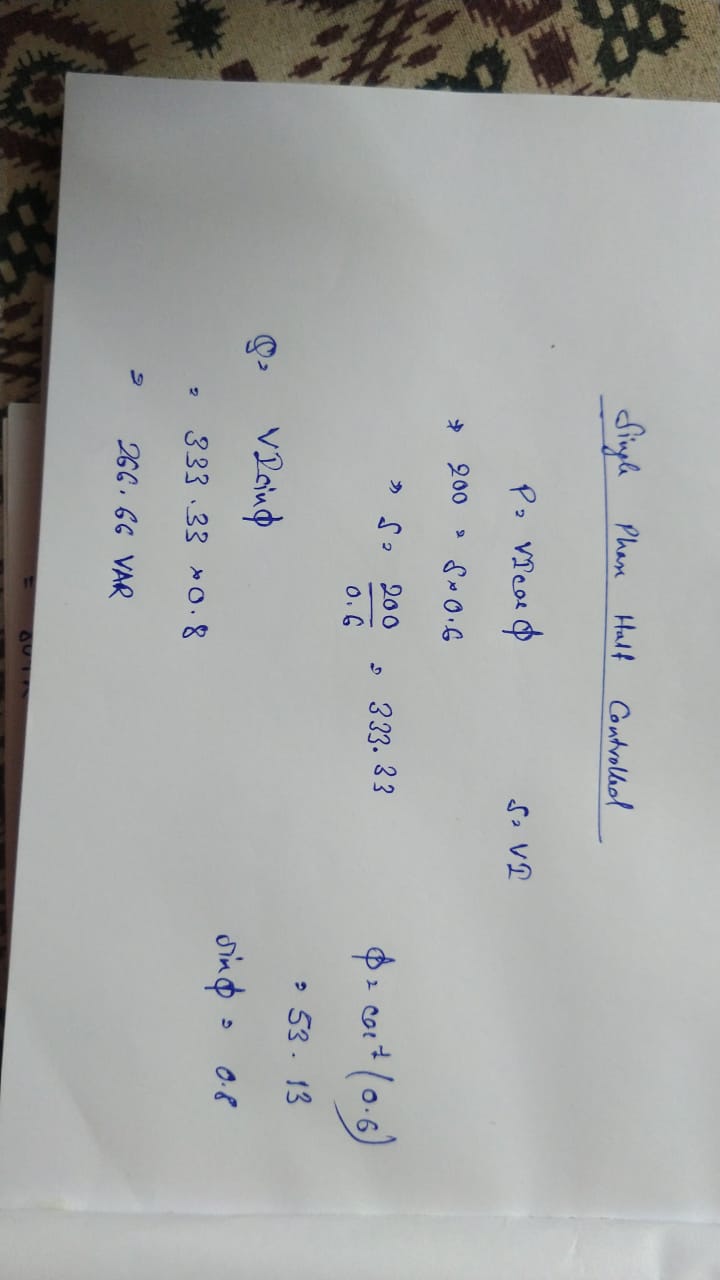 Single Phase Half Controlled
P = VI cos ϕ S = VI
⇒ 200 = S × 0.6
⇒ S = 200/0.6 = 333.33
ϕ = cos⁻¹(0.6)
= 53.13
sin ϕ = 0.8
Q = VI sin ϕ
= 333.33 × 0.8
= 266.66 VAR